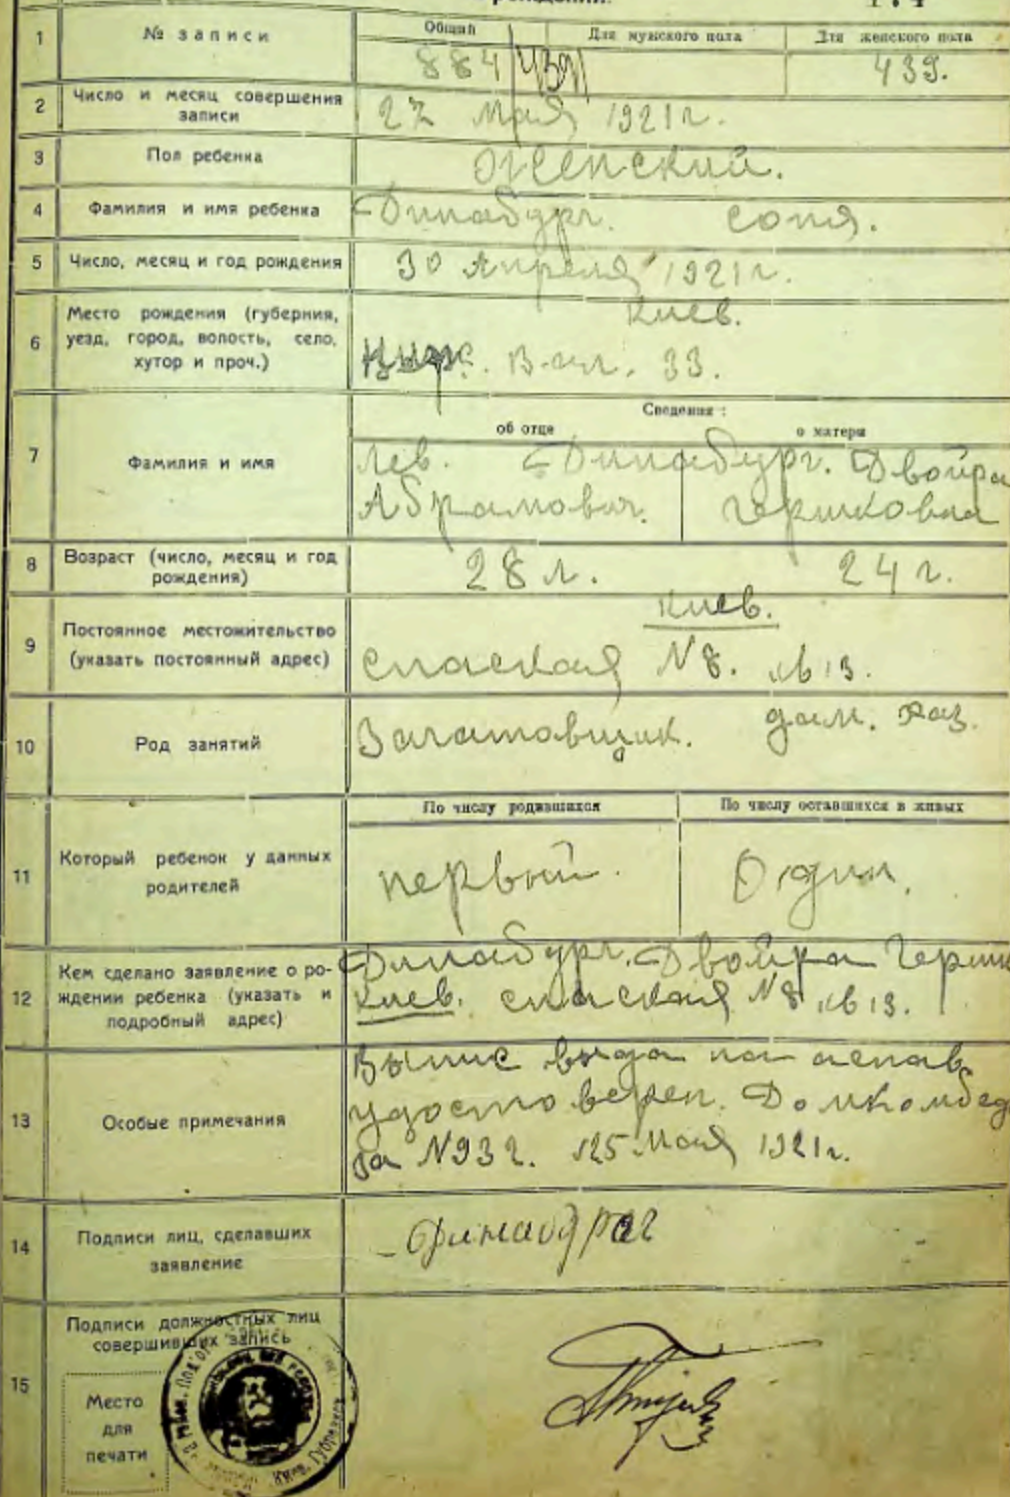 1
№ записи
Общий
Для мужского пола
Для женского пола
884
439.
2
Число и месяц совершения
записи
27 Мая 1921 г.
3
Пол ребенка
Женский.
4
Фамилия и имя ребенка
Динабург. Соня.
5
Число, месяц и год рождения
30 Апреля 1921 г.
6
Место рождения (губерния,
уезд, город, волость, село,
хутор и проч.)
Киев.
33.
7
Фамилия и имя
Сведения:
об отце
о матери
Лев. Динабург. Двойра
Абрамович. Гершковна
8
Возраст (число, месяц и год
рождения)
28 л.
24 г.
9
Постоянное местожительство
(указать постоянный адрес)
Киев.
Спаская N 8. кв 13.
10
Род занятий
Загатовщик.
дом. хаз.
11
Который ребенок у данных
родителей
По числу родившихся
По числу оставшихся в живых
первый.
Один.
12
Кем сделано заявление о ро-
ждении ребенка (указать и
подробный адрес)
Динабург. Двойра Герш
Киев. Спаская N 8 кв 13.
13
Особые примечания
Выпис выда на аснав
удостоверен. Домкомбед
за N 932. 25 Мая 1921 г.
14
Подписи лиц, сделавших
заявление
15
Подписи должностных лиц
совершивших запись
Место
для
печати